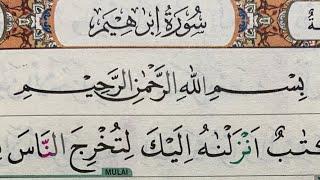 سُوْرَةُ اِبْرٰهِيْمَ
بِسْمِ اللّٰهِ الرَّحْمٰنِ الرَّحِيْمِ
كِتٰبٌ اَنْزَلْنٰهُ اِلَيْكَ لِتُخْرِجَ النَّاسَ
MULAI